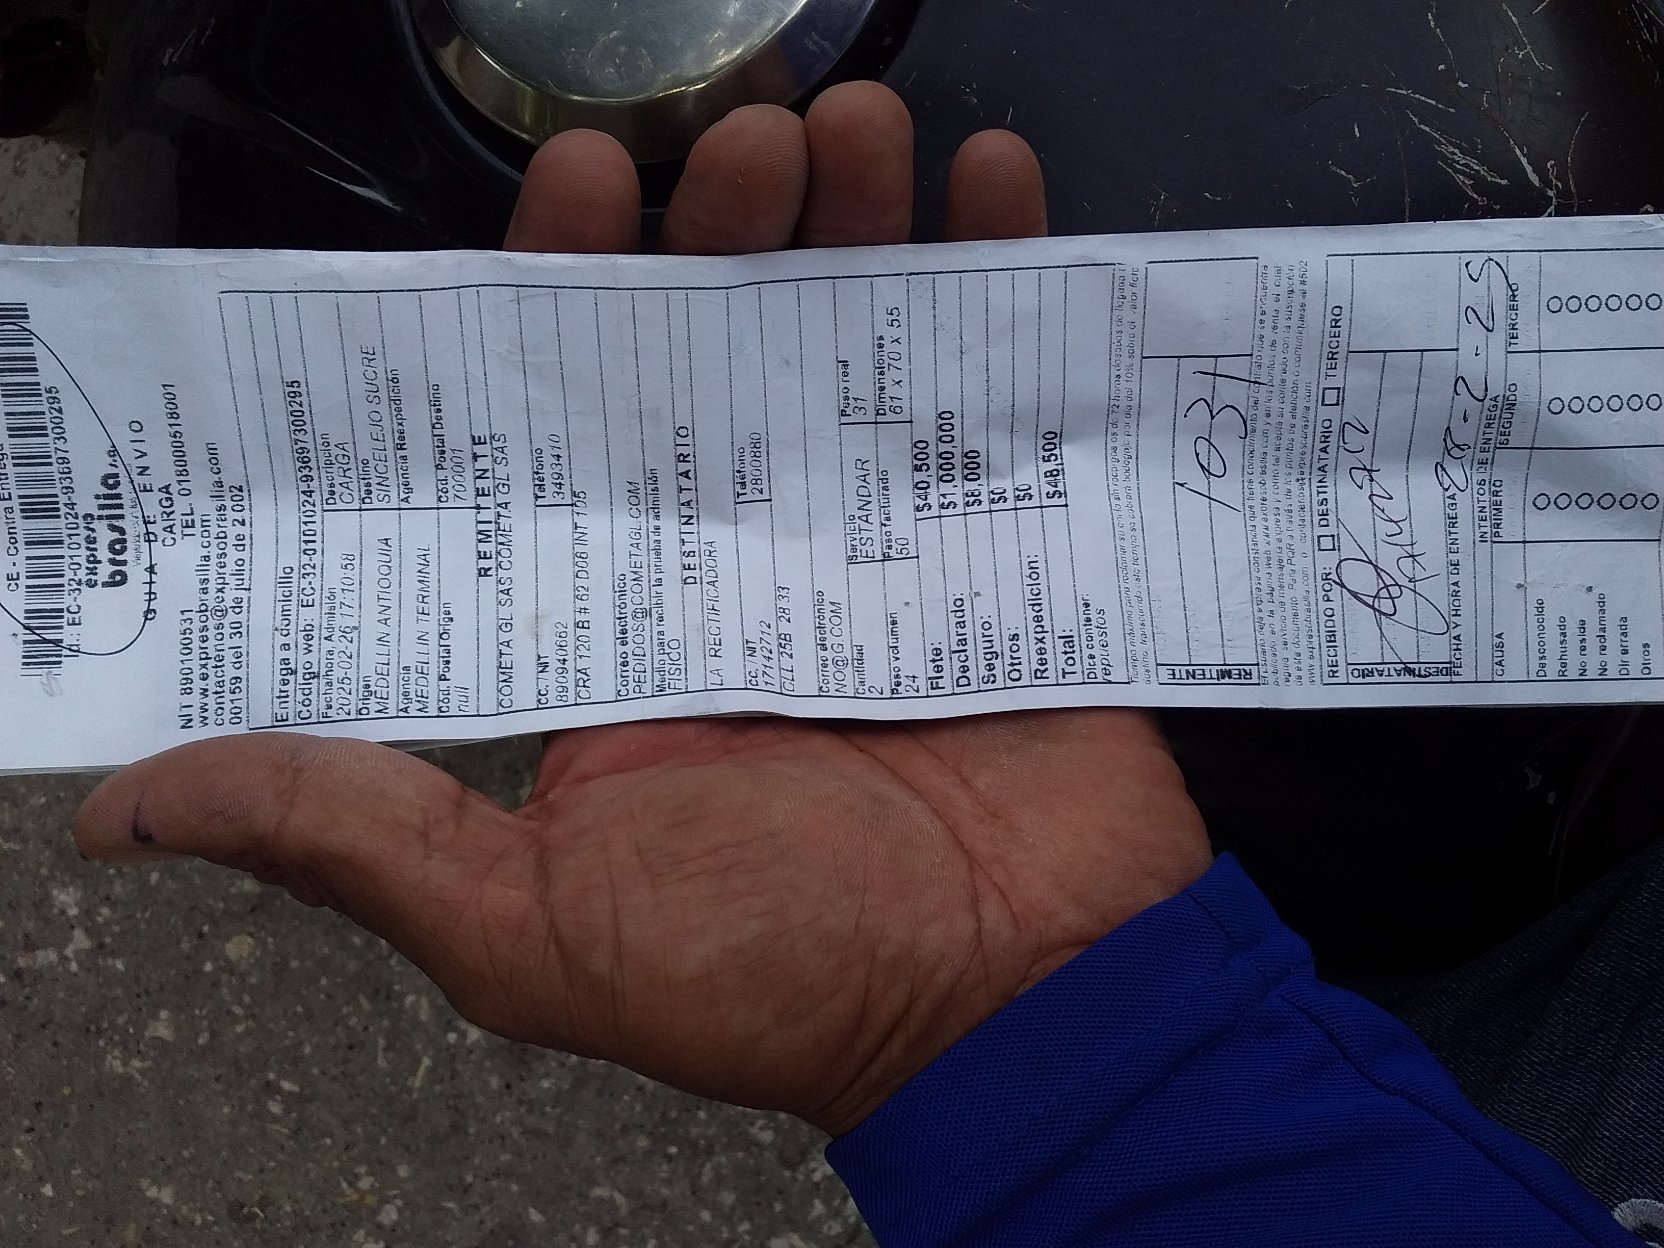 CE - Contra Entrega
Id.: EC-32-0101024-93697300295
expreso
brasilia s.a.
GUIA DE ENVIO
CARGA
NIT 890100531 TEL. 018000518001
www.expresobrasilia.com
contactenos@expresobrasilia.com
00159 del 30 de julio de 2.002
Entrega a domicilio
Código web: EC-32-0101024-93697300295
Fecha/hora, Admisión Descripción
2025-02-26 17:10:58 CARGA
Origen Destino
MEDELLIN ANTIOQUIA SINCELEJO SUCRE
Agencia Agencia Reexpedición
MEDELLIN TERMINAL
Cód. Postal Origen Cód. Postal Destino
null 700001
REMITENTE
COMETA GL SAS COMETA GL SAS
CC. / NIT Teléfono
890940662 3493410
CRA 120 B # 62 D06 INT 105
Correo electrónico
PEDIDOS@COMETAGL.COM
Medio para recibir la prueba de admisión
FISICO
DESTINATARIO
LA RECTIFICADORA
CC. / NIT Teléfono
17142712 2800880
CLL 25B 28 33
Correo electrónico
NO@G.COM
Cantidad Servicio Peso real
2 ESTANDAR 31
Peso volumen Peso facturado Dimensiones
24 50 61 x 70 x 55
Flete: $40,500
Declarado: $1,000,000
Seguro: $8,000
Otros: $0
Reexpedición: $0
Total: $48,500
Dice contener:
repuestos
REMITENTE
1031
RECIBIDO POR: DESTINATARIO TERCERO
DESTINATARIO
FECHA Y HORA DE ENTREGA 28-2-25
CAUSA INTENTOS DE ENTREGA
PRIMERO SEGUNDO TERCERO
Desconocido
Rehusado
No reside
No reclamado
Dir errada
Otros